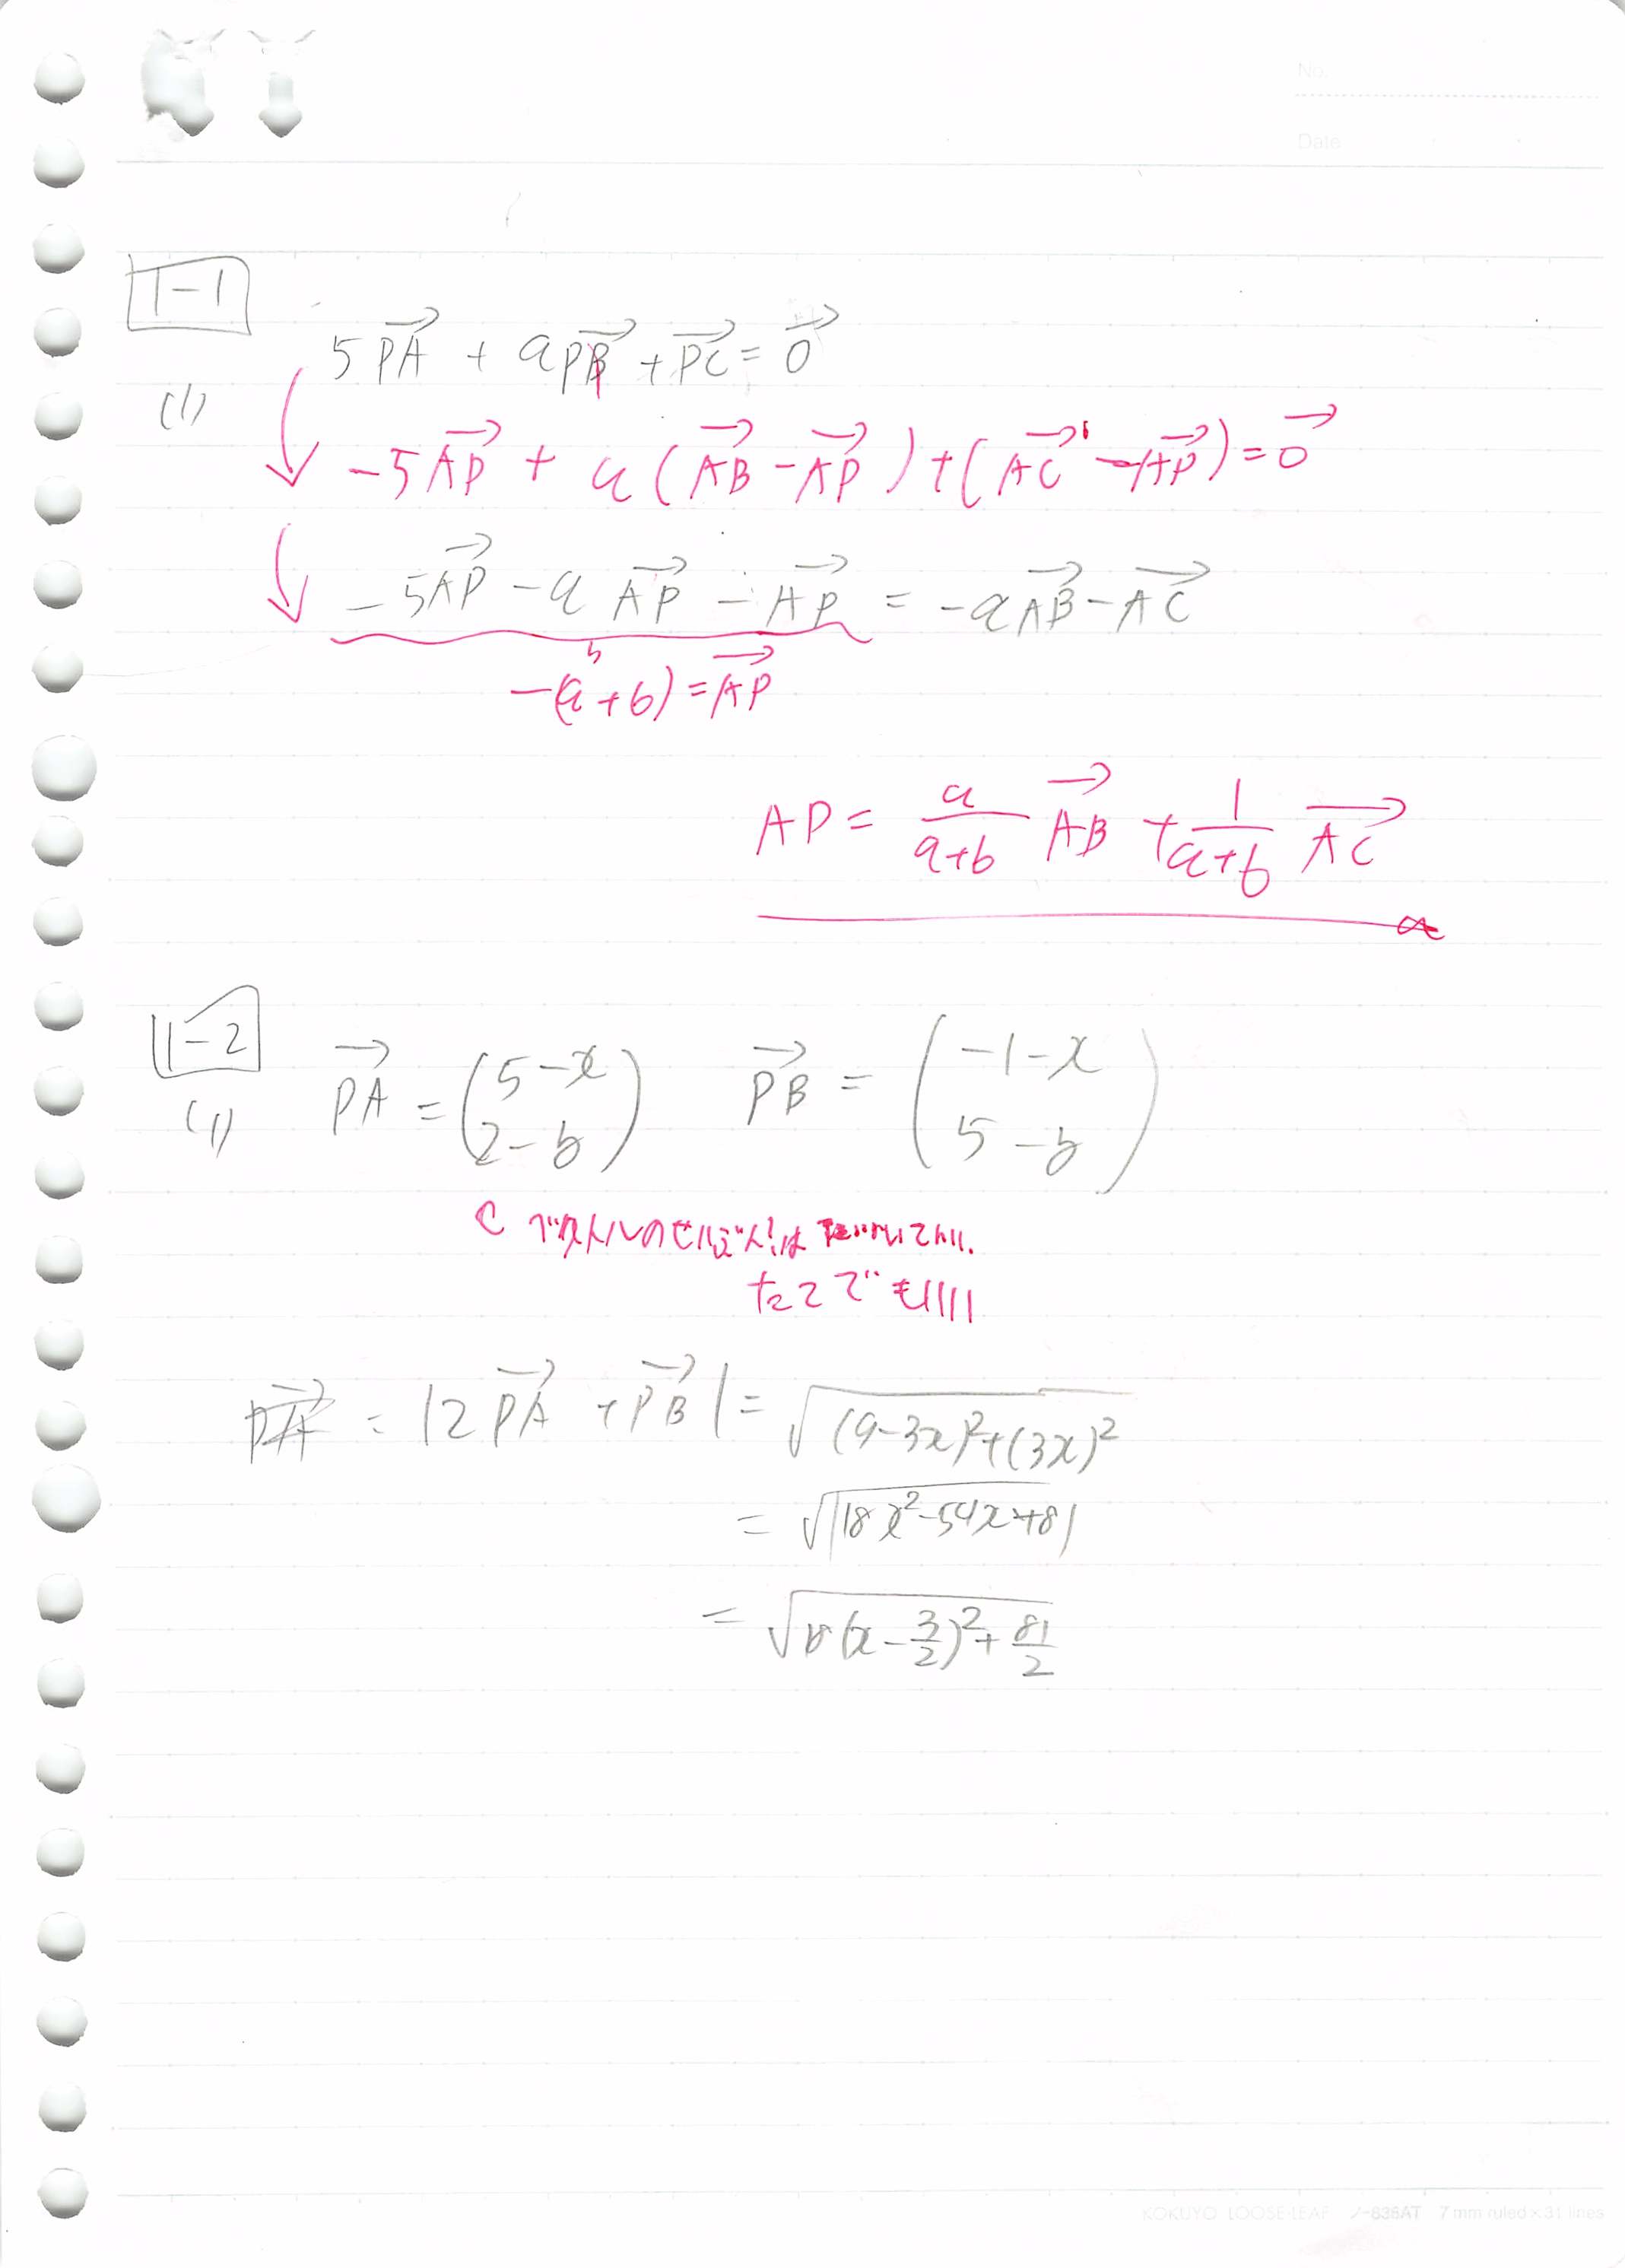 No.
Date
1-1
5PA + aPB + PC = 0
(1)
-5AP + a(AB - AP) + (AC - AP) = 0
-5AP - aAP - AP = -aAB - AC
-(a+6) = AP
AP = a/(a+6) AB + 1/(a+6) AC
1-2
(1) PA = (5-x 2-y) PB = (-1-x 5-y)
ベクトルのせいぶんは
たてでもいい
= |2PA + PB| = √((9-3x)²+(3x)²)
= √(18x²-54x+81)
= √(18(x-3/2)²+81/2)
KOKUYO LOOSE-LEAF ノ-836AT 7 mm ruled×31 lines